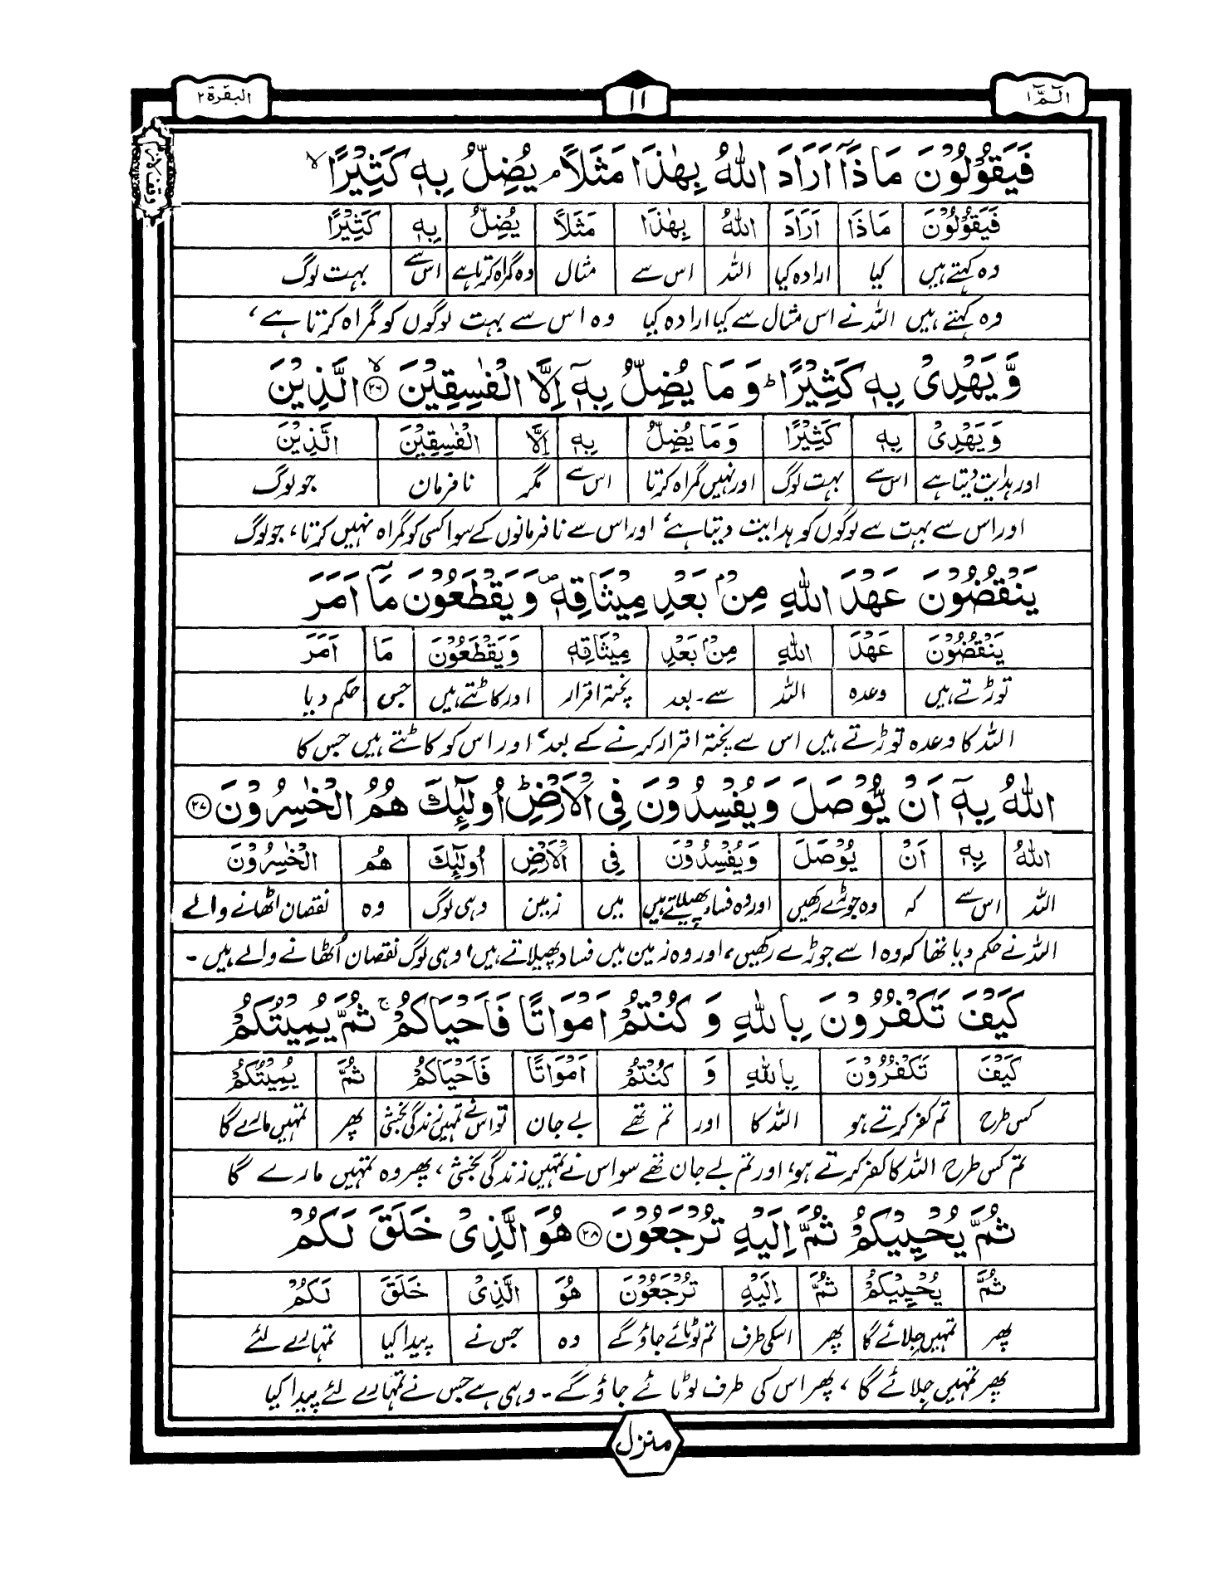 الٓمّٓ ۱ ۱۱ البقرۃ ۲
وقف لازم
فَيَقُوْلُوْنَ مَاذَآ اَرَادَ اللّٰهُ بِهٰذَا مَثَلًا ۘ يُضِلُّ بِهٖ كَثِيْرًا ۙ
فَيَقُوْلُوْنَ مَاذَا اَرَادَ اللّٰهُ بِهٰذَا مَثَلًا يُضِلُّ بِهٖ كَثِيْرًا
وہ کہتے ہیں کیا ارادہ کیا اللہ اس سے مثال وہ گمراہ کرتا ہے اس سے بہت لوگ
وہ کہتے ہیں اللہ نے اس مثال سے کیا ارادہ کیا وہ اس سے بہت لوگوں کو گمراہ کرتا ہے،
وَّيَهْدِىْ بِهٖ كَثِيْرًا ؕ وَمَا يُضِلُّ بِهٖٓ اِلَّا الْفٰسِقِيْنَ ۙ ﴿۲۶﴾ الَّذِيْنَ
وَيَهْدِىْ بِهٖ كَثِيْرًا وَمَا يُضِلُّ بِهٖ اِلَّا الْفٰسِقِيْنَ الَّذِيْنَ
اور ہدایت دیتا ہے اس سے بہت لوگ اور نہیں گمراہ کرتا اس سے مگر نافرمان جو لوگ
اور اس سے بہت سے لوگوں کو ہدایت دیتا ہے، اور اس سے نافرمانوں کے سوا کسی کو گمراہ نہیں کرتا، جو لوگ
يَنْقُضُوْنَ عَهْدَ اللّٰهِ مِنْۢ بَعْدِ مِيْثَاقِهٖ ۪ وَيَقْطَعُوْنَ مَآ اَمَرَ
يَنْقُضُوْنَ عَهْدَ اللّٰهِ مِنْۢ بَعْدِ مِيْثَاقِهٖ وَيَقْطَعُوْنَ مَا اَمَرَ
توڑتے ہیں وعدہ اللہ سے۔ بعد پختہ اقرار اور کاٹتے ہیں جس حکم دیا
اللہ کا وعدہ توڑتے ہیں اس سے پختہ اقرار کرنے کے بعد، اور اس کو کاٹتے ہیں جس کا
اللّٰهُ بِهٖٓ اَنْ يُّوْصَلَ وَيُفْسِدُوْنَ فِى الْاَرْضِ ؕ اُولٰٓئِكَ هُمُ الْخٰسِرُوْنَ ﴿۲۷﴾
اللّٰهُ بِهٖ اَنْ يُوْصَلَ وَيُفْسِدُوْنَ فِى الْاَرْضِ اُولٰٓئِكَ هُمُ الْخٰسِرُوْنَ
اللہ اس سے کہ وہ جوڑے رکھیں اور وہ فساد پھیلاتے ہیں میں زمین وہی لوگ وہ نقصان اٹھانے والے
اللہ نے حکم دیا تھا کہ وہ اسے جوڑے رکھیں، اور وہ زمین میں فساد پھیلاتے ہیں، وہی لوگ نقصان اُٹھانے والے ہیں۔
كَيْفَ تَكْفُرُوْنَ بِاللّٰهِ وَ كُنْتُمْ اَمْوَاتًا فَاَحْيَاكُمْ ۚ ثُمَّ يُمِيْتُكُمْ
كَيْفَ تَكْفُرُوْنَ بِاللّٰهِ وَ كُنْتُمْ اَمْوَاتًا فَاَحْيَاكُمْ ثُمَّ يُمِيْتُكُمْ
کس طرح تم کفر کرتے ہو اللہ کا اور تم تھے بے جان تو اس نے تمہیں زندگی بخشی پھر تمہیں مارے گا
تم کس طرح اللہ کا کفر کرتے ہو، اور تم بے جان تھے سو اس نے تمہیں زندگی بخشی، پھر وہ تمہیں مارے گا
ثُمَّ يُحْيِيْكُمْ ثُمَّ اِلَيْهِ تُرْجَعُوْنَ ﴿۲۸﴾ هُوَ الَّذِىْ خَلَقَ لَكُمْ
ثُمَّ يُحْيِيْكُمْ ثُمَّ اِلَيْهِ تُرْجَعُوْنَ هُوَ الَّذِىْ خَلَقَ لَكُمْ
پھر تمہیں جلائے گا پھر اسکی طرف تم لوٹائے جاؤ گے وہ جس نے پیدا کیا تمہارے لئے
پھر تمہیں جلائے گا، پھر اس کی طرف لوٹائے جاؤ گے۔ وہی ہے جس نے تمہارے لئے پیدا کیا
منزل